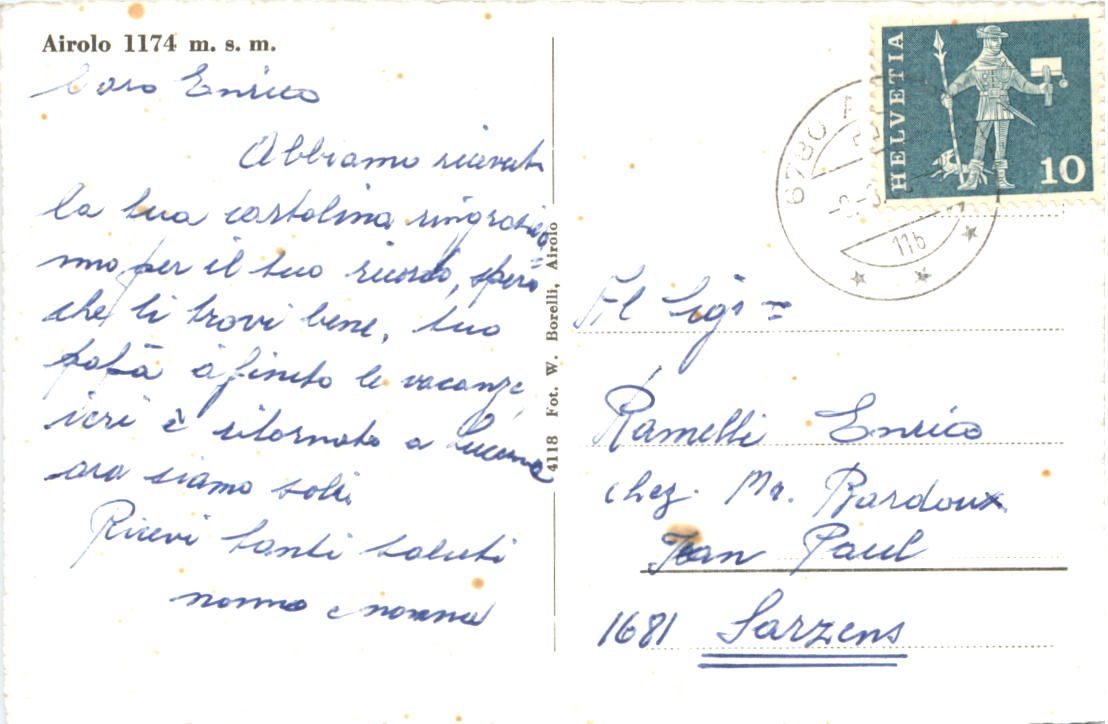 Airolo 1174 m. s. m.
Caro Enrico
Abbiamo ricevuto
la tua cartolina ringrazia
mo per il tuo ricordo, spero
che ti trovi bene, tuo
papà à finito le vacanze,
ieri è ritornato a Lucerna
ora siamo soli.
Ricevi tanti saluti
nonno e nonna
4118 Fot. W. Borelli, Airolo
HELVETIA
10
6780 A
11b
Al Sig=
Ramelli Enrico
chez. Mr. Bardoux
Jean Paul
1681 Sarzens